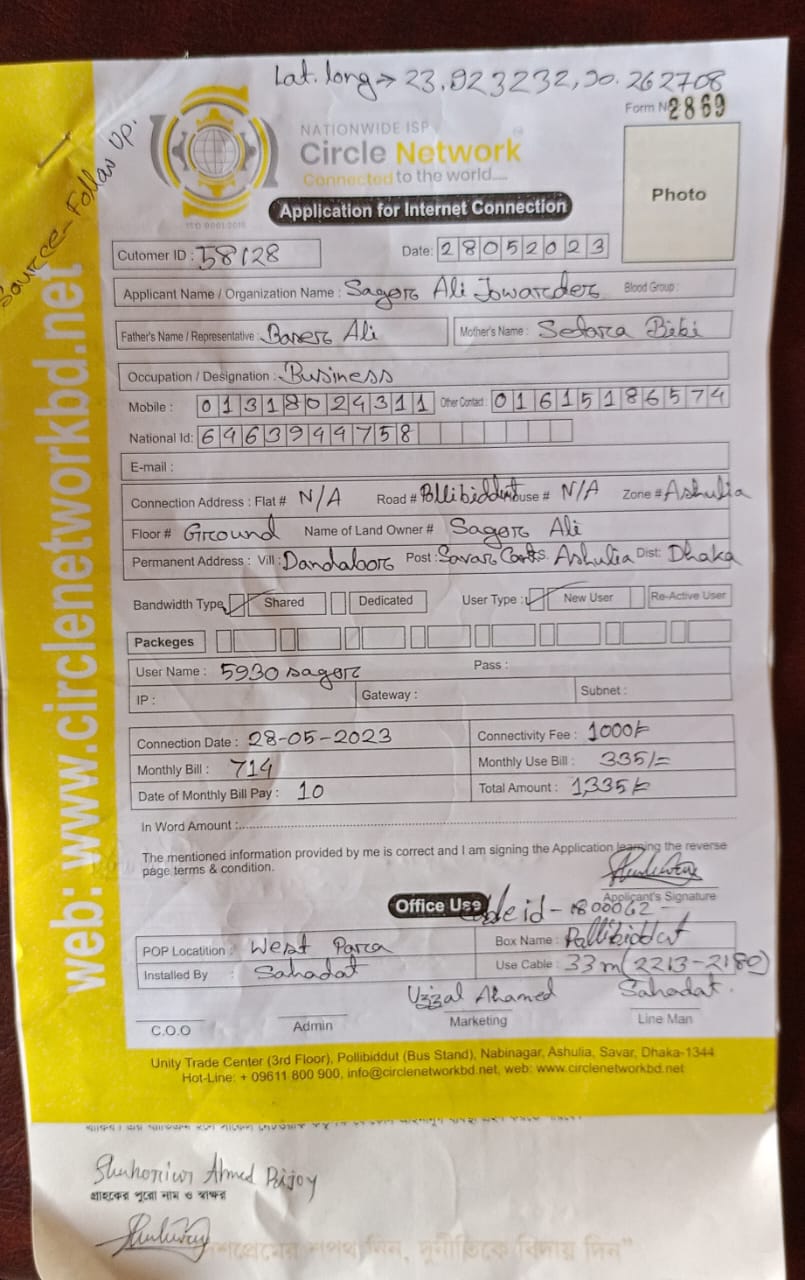 Lat. long → 23.923232, 90.262708
Source - Follow Up.
Form No 2869
NATIONWIDE ISP
Circle Network
Connected to the world....
ISO 9001:2015
Application for Internet Connection
Photo
Cutomer ID : 58128 Date: 28052023
Applicant Name / Organization Name : Sagor Ali Jowarder Blood Group :
Father's Name / Representative : Baser Ali Mother's Name : Setara Bibi
Occupation / Designation : Business
Mobile : 01318024311 Other Contact : 01615186574
National Id: 6463944758
E-mail :
Connection Address : Flat # N/A Road # Pollibiddut House # N/A Zone # Ashulia
Floor # Ground Name of Land Owner # Sagor Ali
Permanent Address : Vill : Dandabor Post : Savar Cantt. Ashulia Dist: Dhaka
Bandwidth Type Shared Dedicated User Type : New User Re-Active User
Packeges
User Name : 5930 sagor Pass :
IP : Gateway : Subnet :
Connection Date : 28-05-2023 Connectivity Fee : 1000/-
Monthly Bill : 714 Monthly Use Bill : 335/=
Date of Monthly Bill Pay : 10 Total Amount : 1,335/-
In Word Amount :
The mentioned information provided by me is correct and I am signing the Application learning the reverse
page terms & condition.
Applicant's Signature
Office Use Cable id - 1800062
POP Locatition : West Para Box Name : Pallibiddut
Installed By : Sahadat Use Cable : 33m (2213-2180)
Uzzal Ahamed Sahadat.
C.O.O Admin Marketing Line Man
Unity Trade Center (3rd Floor), Pollibiddut (Bus Stand), Nabinagar, Ashulia, Savar, Dhaka-1344
Hot-Line: + 09611 800 900, info@circlenetworkbd.net, web: www.circlenetworkbd.net
web: www.circlenetworkbd.net
Ahmed Bijoy
গ্রাহকের পুরো নাম ও স্বাক্ষর
দেশপ্রেমের শপথ নিন, দুর্নীতিকে বিদায় দিন"